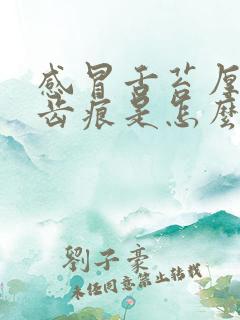 感冒舌苔厚
齒痕是怎麼
劉子豪
未经同意禁止转载